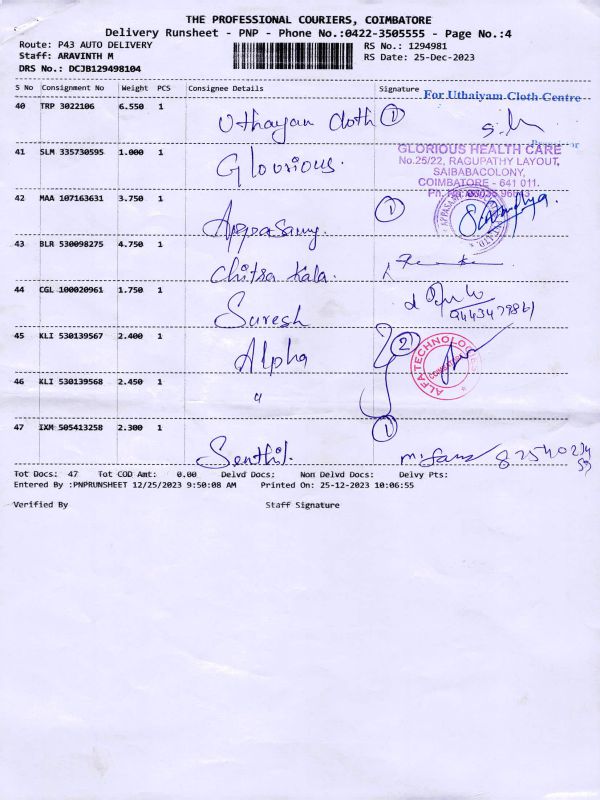 THE PROFESSIONAL COURIERS, COIMBATORE
Delivery Runsheet - PNP - Phone No.:0422-3505555 - Page No.:4
Route: P43 AUTO DELIVERY RS No.: 1294981
Staff: ARAVINTH M RS Date: 25-Dec-2023
DRS No.: DCJB129498104
S No Consignment No Weight PCS Consignee Details Signature
For Uthaiyam Cloth Centre
40 TRP 3022106 6.550 1 Uthayam Cloth 1
41 SLM 335730595 1.000 1 Glourious.
GLORIOUS HEALTH CARE
No.25/22, RAGUPATHY LAYOUT,
SAIBABACOLONY,
COIMBATORE - 641 011.
42 MAA 107163631 3.750 1 Appasamy. 1
43 BLR 530098275 4.750 1 Chitra Kala.
44 CGL 100020961 1.750 1 Suresh
45 KLI 530139567 2.400 1 Alpha 2
ALFA TECHNOLOGIES
46 KLI 530139568 2.450 1 "
47 IXM 505413258 2.300 1 Senthil. 1
Tot Docs: 47 Tot COD Amt: 0.00 Delvd Docs: Non Delvd Docs: Delvy Pts:
Entered By :PNPRUNSHEET 12/25/2023 9:50:08 AM Printed On: 25-12-2023 10:06:55
Verified By Staff Signature